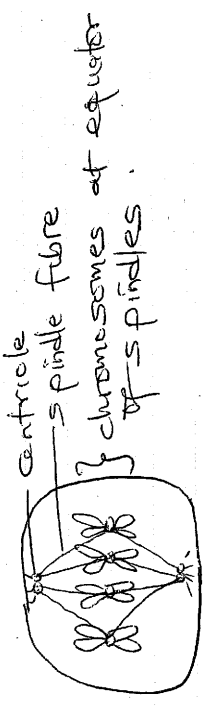 centriole
spindle fibre
chromosomes at equator
of spindles.